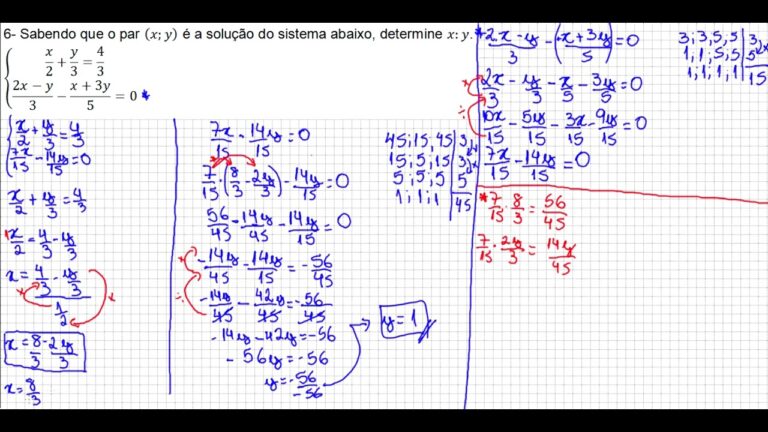 6- Sabendo que o par (x; y) é a solução do sistema abaixo, determine x: y.
x/2 + y/3 = 4/3
(2x − y)/3 − (x + 3y)/5 = 0 *
x/2 + y/3 = 4/3
7x/15 − 14y/15 = 0
x/2 + y/3 = 4/3
x/2 = 4/3 − y/3
x = (4/3 − y/3)/(1/2)
x = 8/3 − 2y/3
x = 8/3
7x/15 − 14y/15 = 0
7/15 · (8/3 − 2y/3) − 14y/15 = 0
56/45 − 14y/45 − 14y/15 = 0
−14y/45 − 14y/15 = −56/45
−14y/45 − 42y/45 = −56/45
−14y − 42y = −56
−56y = −56
y = −56/−56
y = 1
45; 15, 45 | 3
15; 5; 15 | 3
5; 5; 5 | 5
1; 1; 1 | 45
* (2x − y)/3 − (x + 3y)/5 = 0
2x/3 − y/3 − x/5 − 3y/5 = 0
10x/15 − 5y/15 − 3x/15 − 9y/15 = 0
7x/15 − 14y/15 = 0
3; 3, 5, 5 | 3
1; 1; 5; 5 | 5
1; 1; 1, 1 | 15
* 7/15 · 8/3 = 56/45
7/15 · 2y/3 = 14y/45